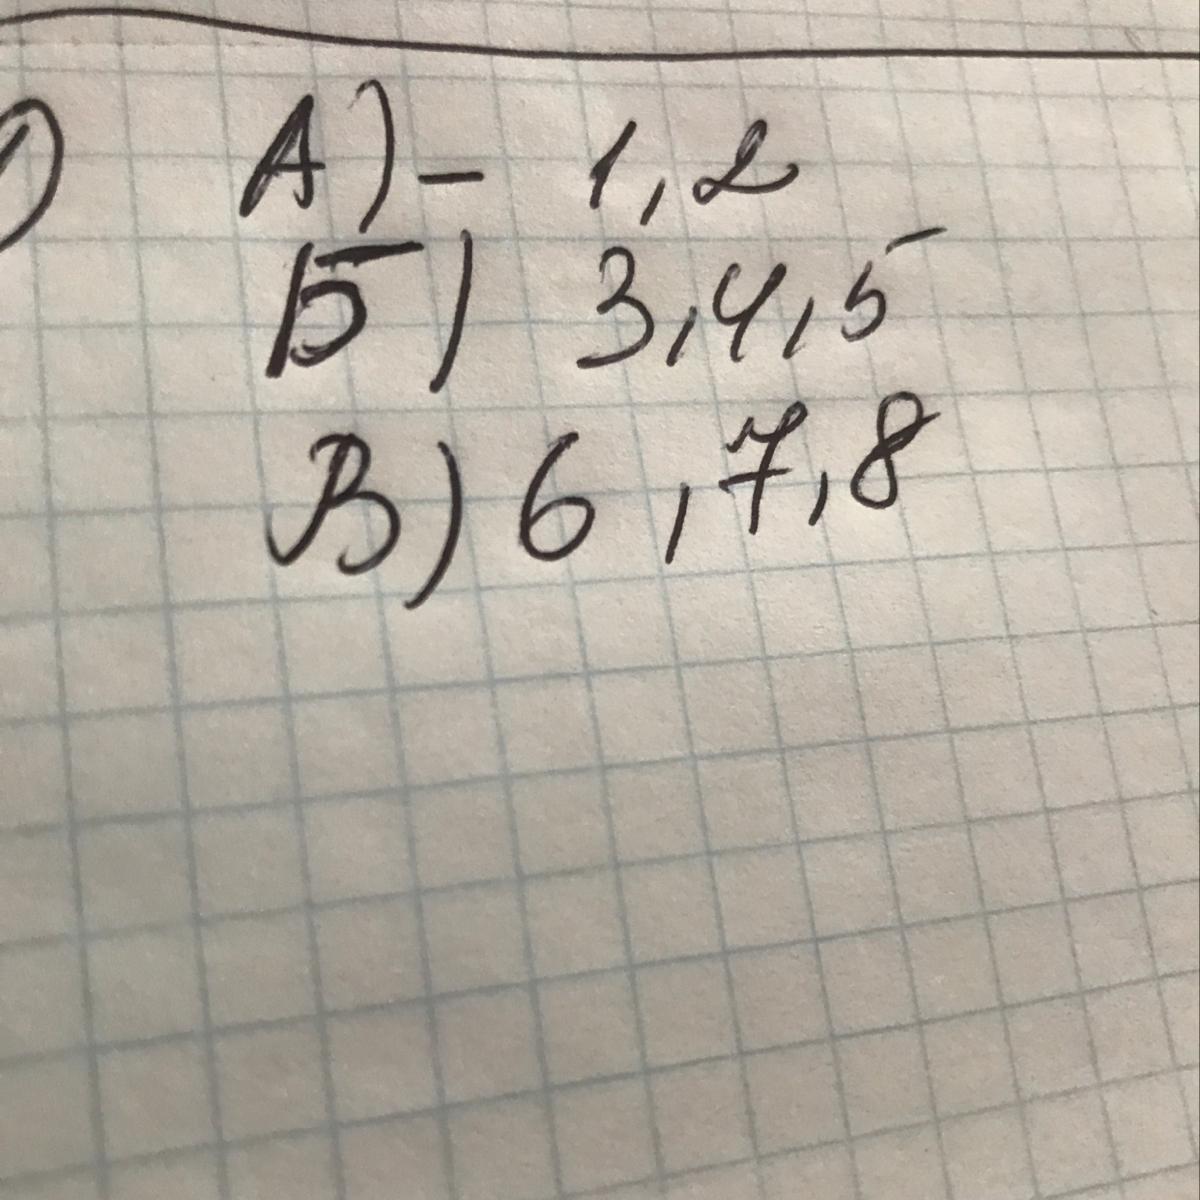 А) - 1, 2
Б) 3, 4, 5
В) 6, 7, 8